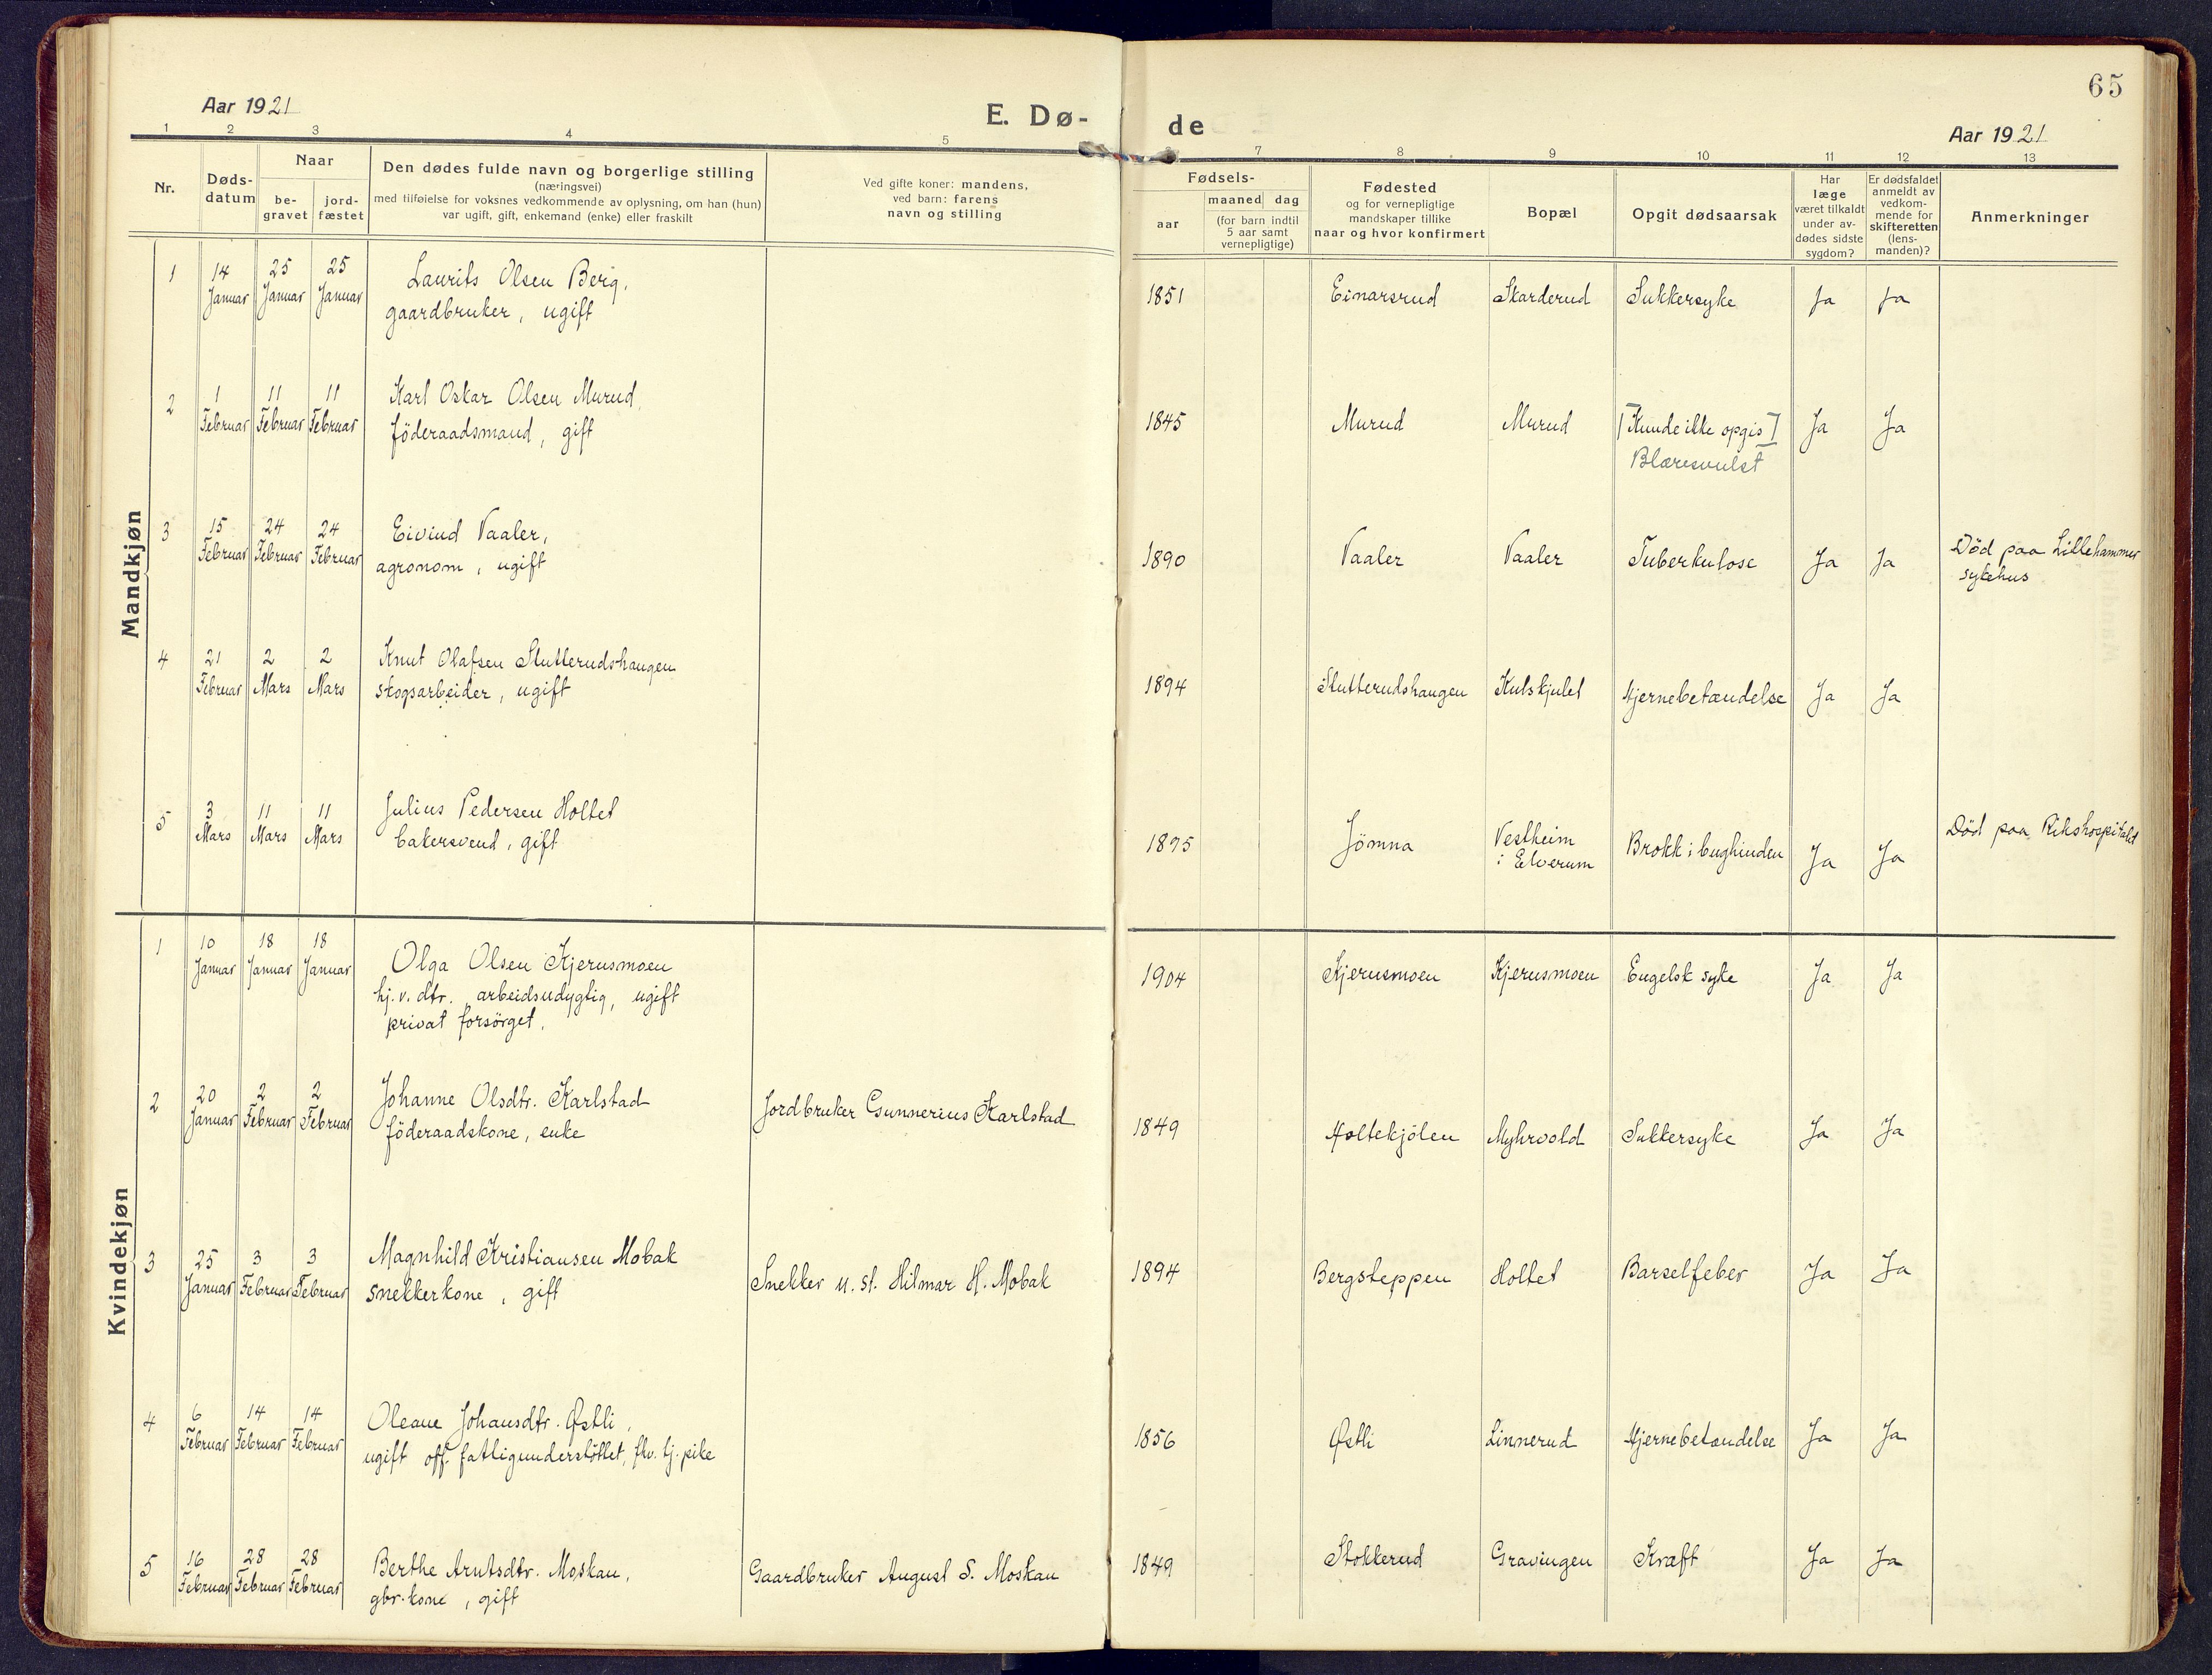 65
Aar 1921
E. Dø-
de
Aar 1921
1 2 3 4 5
6 7 8 9 10 11 12 13
Nr.
Døds-
datum
Naar
be-
gravet
jord-
fæstet
Den dødes fulde navn og borgerlige stilling
(næringsvei)
med tilføielse for voksnes vedkommende av oplysning, om han (hun)
var ugift, gift, enkemand (enke) eller fraskilt
Ved gifte koner: mandens,
ved barn: farens
navn og stilling
Fødsels-
aar
maaned dag
(for barn indtil
5 aar samt
vernepligtige)
Fødested
og for vernepligtige
mandskaper tillike
naar og hvor konfirmert
Bopæl
Opgit dødsaarsak
Har
læge
været tilkaldt
under av-
dødes sidste
sygdom?
Er dødsfaldet
anmeldt av
vedkom-
mende for
skifteretten
(lens-
manden)?
Anmerkninger
Mandkjøn
1
14
Januar
25
Januar
25
Januar
Laurits Olsen Berg,
gaardbruker, ugift
1851
Einarsrud
Skarderud
Sukkersyke
Ja
Ja
2
1
Februar
11
Februar
11
Februar
Karl Oskar Olsen Murud,
föderaadsmand, gift
1845
Murud
Murud
[Kunde ikke opgis]
Blæresvulst
Ja
Ja
3
15
Februar
24
Februar
24
Februar
Eivind Vaaler,
agronom, ugift
1890
Vaaler
Vaaler
Tuberkulose
Ja
Ja
Död paa Lillehammer
sykehus
4
21
Februar
2
Mars
2
Mars
Knut Olafsen Slutterudshaugen
skogsarbeider, ugift
1894
Slutterudshaugen
Kulskjulet
Hjernebetændelse
Ja
Ja
5
3
Mars
11
Mars
11
Mars
Julius Pedersen Holtet
bakersvend, gift
1895
Jömna
Vestheim
i Elverum
Brokk i bughinden
Ja
Ja
Död paa Rikshospitalet
Kvindekjøn
1
10
Januar
18
Januar
18
Januar
Olga Olsen Kjernsmoen
hj. v. dtr. arbeidsudygtig, ugift
privat forsörget.
1904
Kjernsmoen
Kjernsmoen
Engelsk syke
Ja
Ja
2
20
Januar
2
Februar
2
Februar
Johanne Olsdtr. Karlstad
föderaadskone, enke
Jordbruker Gunnerius Karlstad
1849
Holtekjölen
Myhrvold
Sukkersyke
Ja
Ja
3
25
Januar
3
Februar
3
Februar
Magnhild Kristiansen Mobak
snekkerkone, gift
Snekker u. st. Hilmar H. Mobak
1894
Bergsteppen
Holtet
Barselfeber
Ja
Ja
4
6
Februar
14
Februar
14
Februar
Oleane Johansdtr. Østli,
ugift off. fattigunderstöttet, fhv. tj. pike
1856
Østli
Linnerud
Hjernebetændelse
Ja
Ja
5
16
Februar
28
Februar
28
Februar
Berthe Arntsdtr. Moskau,
gbr. kone, gift
Gaardbruker August S. Moskau
1849
Stokkerud
Gravingen
Kræft
Ja
Ja